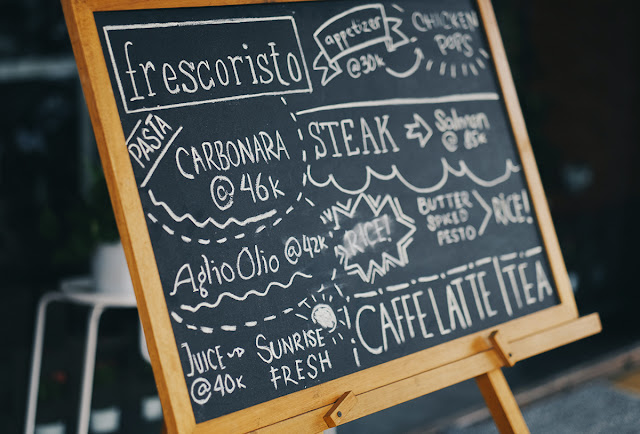 frescoristo
appetizer
@30K
CHICKEN
POPS
PASTA
CARBONARA
@46K
Aglio Olio @42K
STEAK
Salmon
@ 85K
RICE!
BUTTER
SPICED
PESTO
RICE!
JUICE
@40K
SUNRISE
FRESH
CAFFE LATTE | TEA